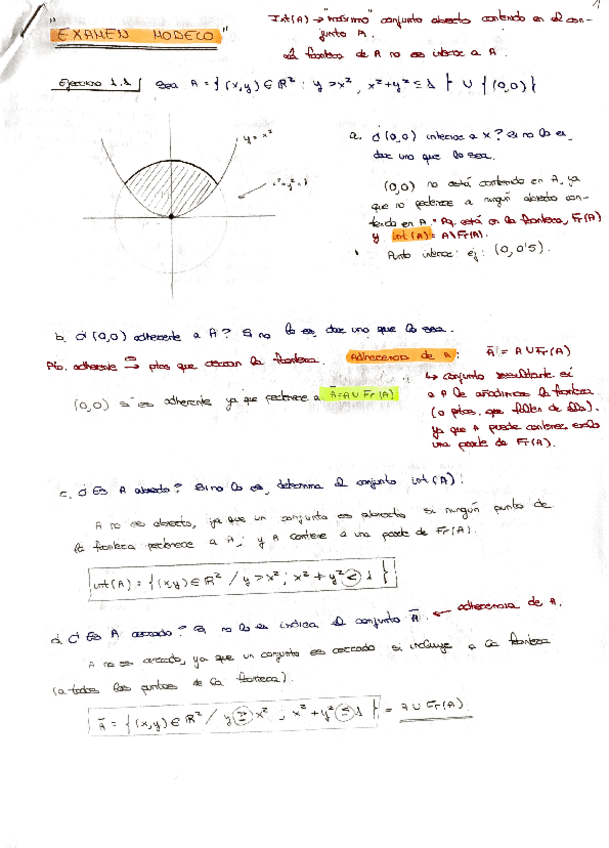 1
"EXAMEN MODELO"
Int(A) → "máximo" conjunto abierto contenido en el con-
junto A.
La frontera de A no es interior a A.
Ejercicio 1.1 / Sea A = { (x,y) ∈ R² : y > x², x²+y² ≤ 1 } ∪ { (0,0) }
y = x²
x²+y²=1
a. ¿(0,0) interior a x? Si no lo es,
dar uno que lo sea.
(0,0) no está contenido en A, ya
que no pertenece a ningún abierto con-
tenido en A. Aq. está en la frontera, Fr(A)
y int(A) = A\Fr(A).
Punto interior: ej: (0,0'5).
b. ¿(0,0) adherente a A? Si no lo es, dar uno que lo sea.
Pto. adherente → ptos que tocan la frontera.
Adherencia de A: Ā = A ∪ Fr(A)
↳ conjunto resultante si
a A le añadimos la frontera
(o ptos. que falten de ella),
ya que A puede contener solo
una parte de Fr(A).
(0,0) si es adherente ya que pertenece a Ā=A∪Fr(A)
c. ¿Es A abierto? Si no lo es, determina el conjunto int(A):
A no es abierto, ya que un conjunto es abierto si ningún punto de
la frontera pertenece a A; y A contiene a una parte de Fr(A).
int(A) = { (x,y) ∈ R² / y > x² ; x² + y² < 1 }
d. ¿Es A cerrado? Si no lo es indica el conjunto Ā. ← adherencia de A.
A no es cerrado, ya que un conjunto es cerrado si incluye a la frontera
(a todos los puntos de la frontera).
Ā = { (x,y) ∈ R² / y ≥ x² , x²+y² ≤ 1 } = A ∪ Fr(A)